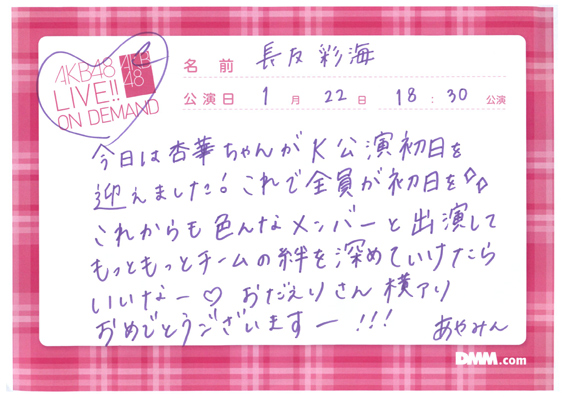 AKB48
LIVE!!
ON DEMAND
AKB
48
名前 長友彩海
公演日 1月22日 18:30公演
今日は杏華ちゃんがK公演初日を
迎えました! これで全員が初日を
これからも色んなメンバーと出演して
もっともっとチームの絆を深めていけたら
いいなー♡ おだえりさん横アリ
おめでとうございますー!!!
あやみん
DMM.com